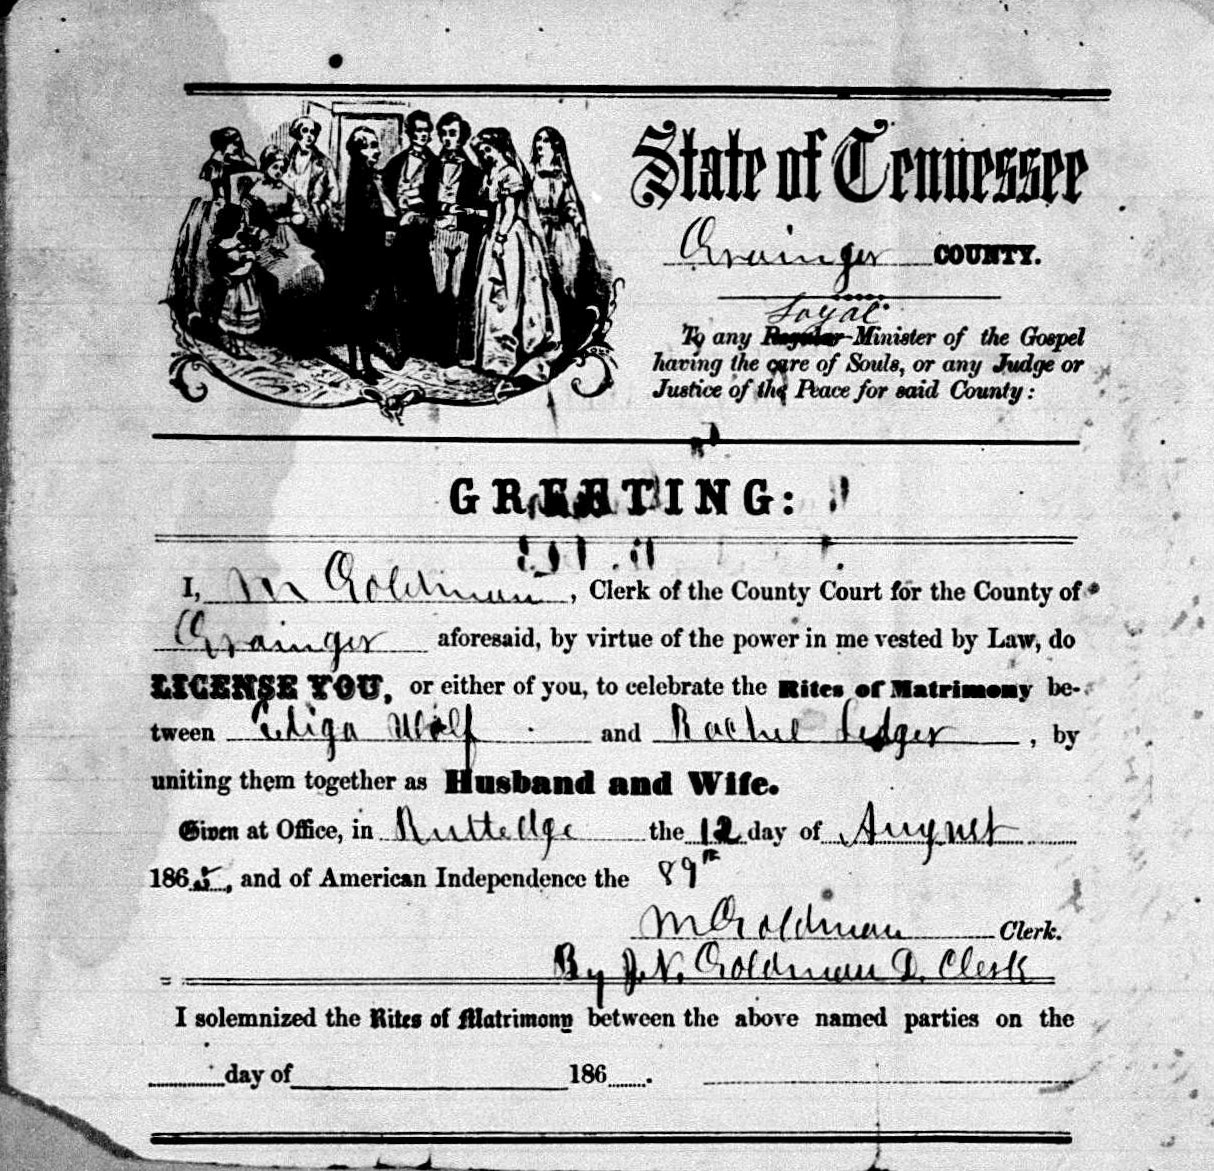 State of Tennessee
Grainger COUNTY.
Loyal
To any Regular Minister of the Gospel
having the care of Souls, or any Judge or
Justice of the Peace for said County:
GREETING:
I, M Goldman, Clerk of the County Court for the County of
Grainger aforesaid, by virtue of the power in me vested by Law, do
LICENSE YOU, or either of you, to celebrate the Rites of Matrimony be-
tween Wolf and Rachel Ledger, by
uniting them together as Husband and Wife.
Given at Office, in Rutledge the 12 day of August
1865, and of American Independence the 89th
M Goldman Clerk.
By J. N. Goldman D. Clerk
I solemnized the Rites of Matrimony between the above named parties on the
day of 186 .